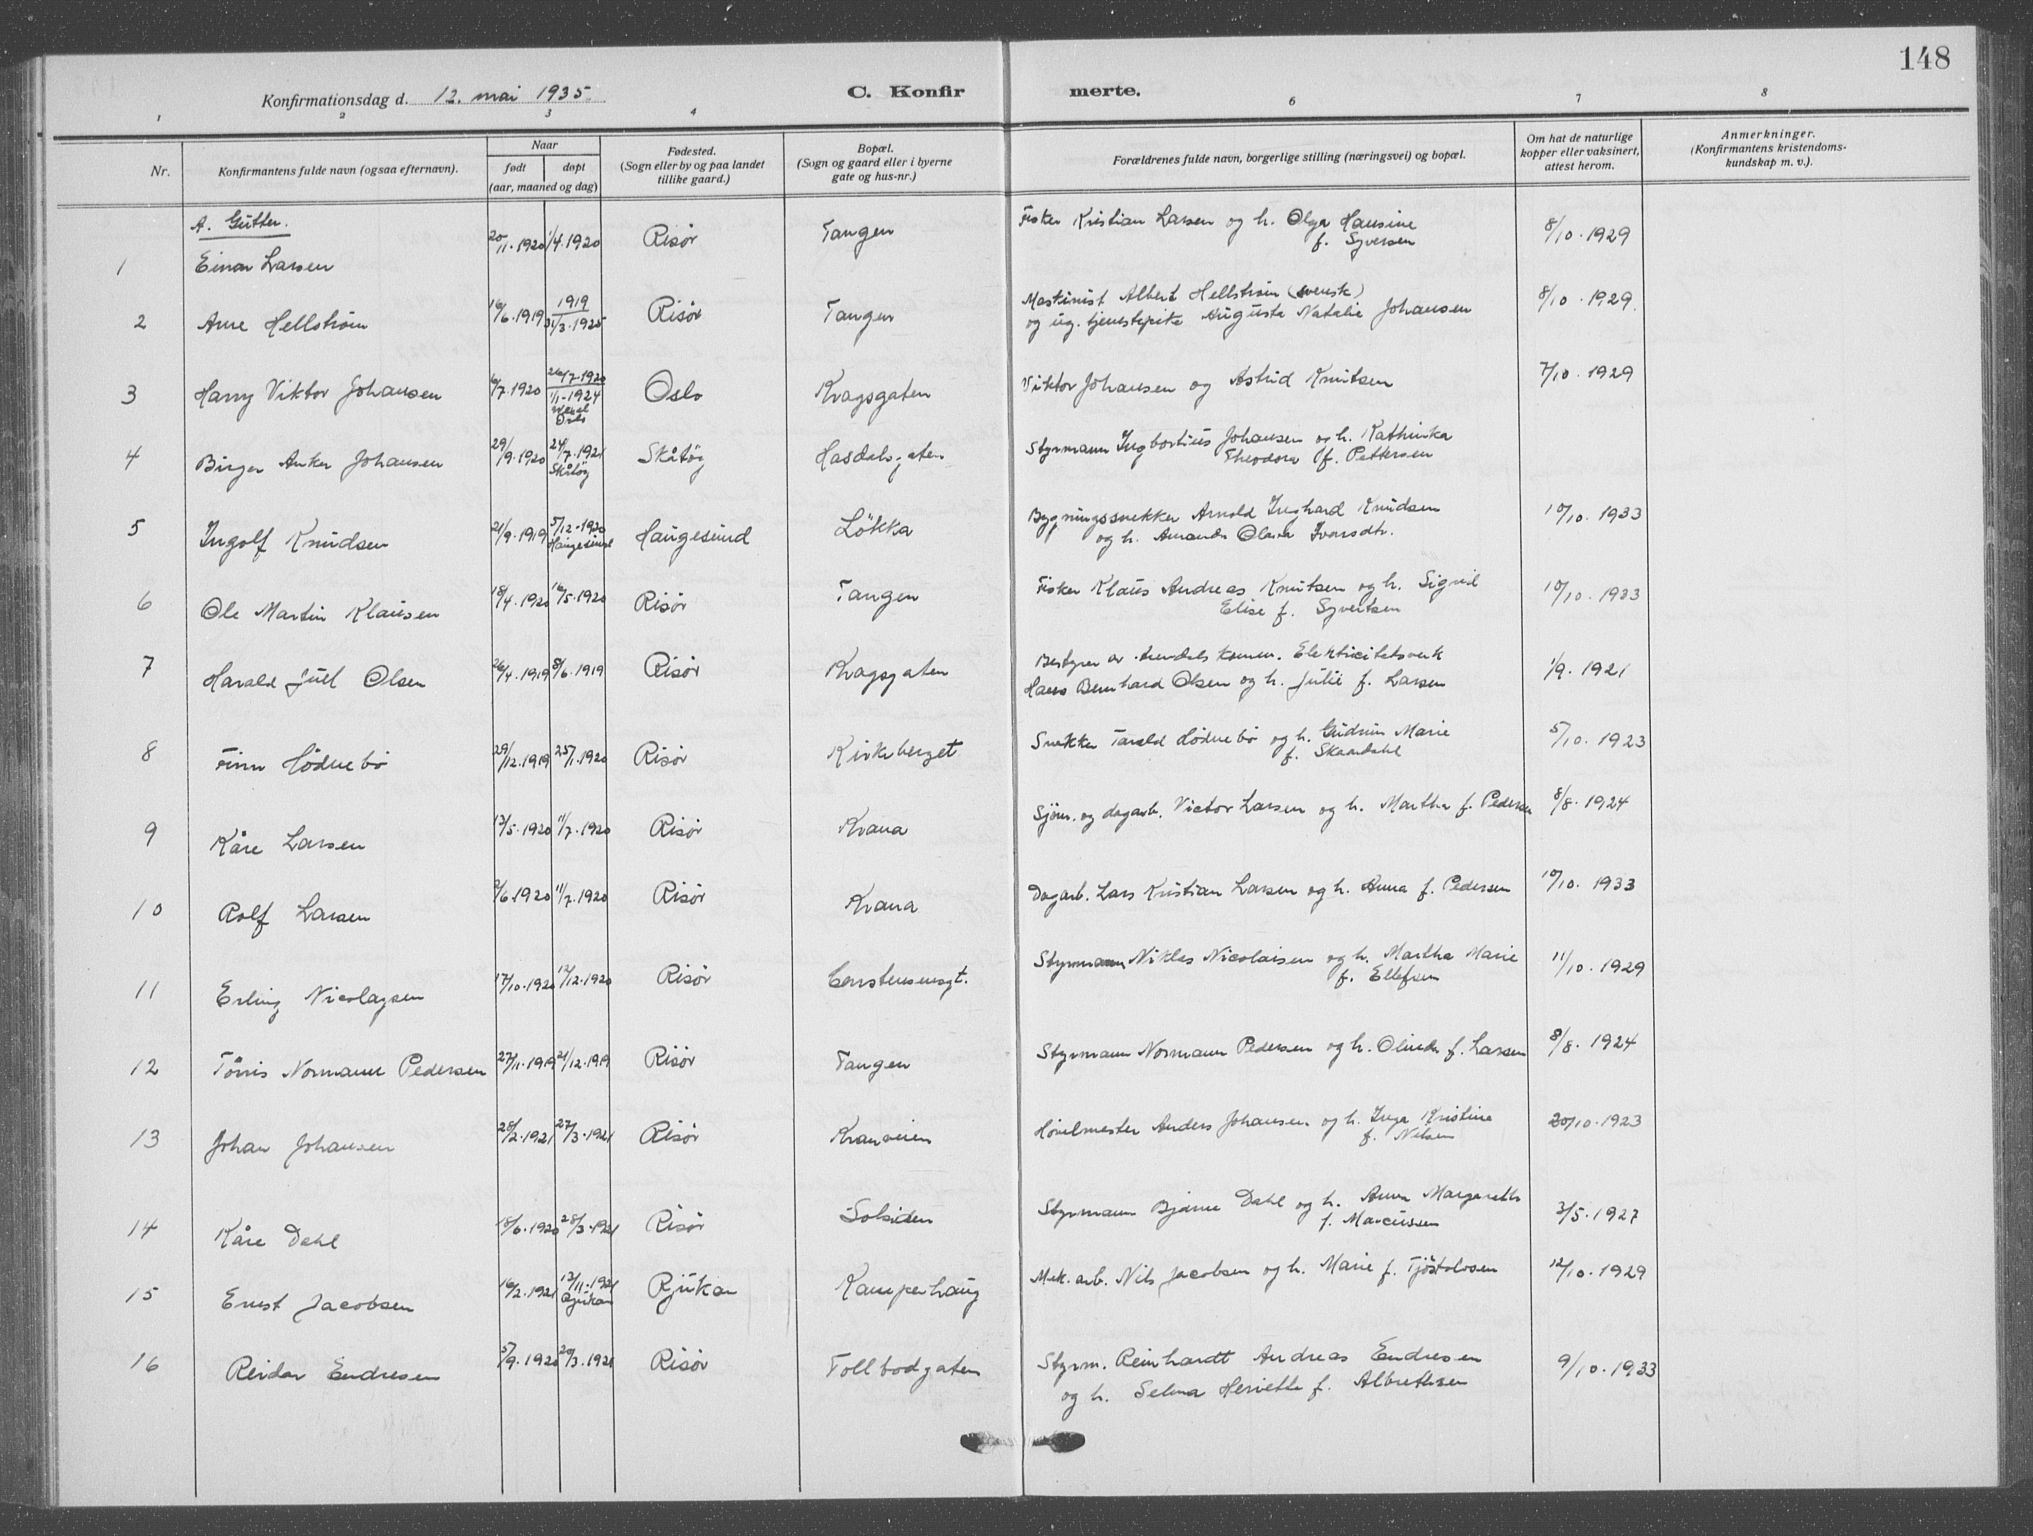 148
Konfirmationsdag d. 12. mai 1935.
C. Konfirmerte.
1 2 3 4 6 7 8
Nr.
Konfirmantens fulde navn (ogsaa efternavn).
Naar
født
døpt
(aar, maaned og dag)
Fødested.
(Sogn eller by og paa landet
tillike gaard.)
Bopæl.
(Sogn og gaard eller i byerne
gate og hus-nr.)
Forældrenes fulde navn, borgerlige stilling (næringsvei) og bopæl.
Om hat de naturlige
kopper eller vaksinert,
attest herom.
Anmerkninger.
(Konfirmantens kristendoms-
kundskap m. v.).
A. Gutter.
1 Einar Larsen 20/11.1920 1/4.1920 Risør Tangen Fisker Kristian Larsen og h. Olga Hansine 8/10.1929
f. Syversen
2 Arne Hellstrøm 16/6.1919 1919 Risør Tangen Maskinist Albert Hellstrøm (svensk) 8/10.1929.
31/3.1925 og ug. tjenestepike Augusta Natalie Johansen
3 Harry Viktor Johansen 6/7.1920 26/7.1920 Oslo Kragsgaten Viktor Johansen og Astrid Knutsen 7/10.1929
1/1-1924
Oslo
4 Birger Anker Johansen 29/9.1920 24/7.1921 Skåtøy Hasdalsgaten Styrmann Ingbortius Johansen og h. Kathinka
Skåtøy Theodora f. Pettersen
5 Ingolf Knudsen 21/9.1919 5/12-1920 Haugesund Løkka Bygningssnekker Arnold Inghard Knudsen 10/10.1933
Haugesund og h. Amanda Olava Ivarsdtr.
6 Ole Martin Klausen 18/4.1920 16/5.1920 Risør Tangen Fisker Klaus Andreas Knutsen og h. Sigrid 10/10.1933
Elise f. Syvertsen
7 Harald Juel Olsen 26/4.1919 8/6.1919 Risør Kragsgaten Bestyrer av Arendals komm. Elektricitetsverk 1/9.1921
Hans Bernhard Olsen og h. Julie f. Larsen
8 Finn Hødnebø 29/12.1919 25/1.1920 Risør Kirkeberget Snekker Tarald Hødnebø og h. Gudrun Marie 5/10.1923
f. Skaardahl
9 Kåre Larsen 13/5.1920 11/7.1920 Risør Krana Sjøm. og dagarb. Victor Larsen og h. Martha f. Pedersen 8/8.1924
10 Rolf Larsen 2/6.1920 11/7.1920 Risør Krana Dagarb. Lars Kristian Larsen og h. Anna f. Pedersen 10/10.1933
11 Erling Nicolaysen 17/10.1920 12/12.1920 Risør Carstensensgt. Styrmann Niklas Nicolaisen og h. Martha Marie 11/10.1929
f. Ellefsen
12 Tønnis Normann Pedersen 27/11.1919 21/12.1919 Risør Tangen Styrmann Normann Pedersen og h. Olinda f. Larsen 8/8.1924
13 Johan Johansen 28/2.1921 27/3.1921 Risør Kranveien Høvelmester Anders Johansen og h. Inga Kristine 20/10.1923
f. Nilsen
14 Kåre Dahl 18/6.1920 28/3.1921 Risør Solsiden Styrmann Bjarne Dahl og h. Anna Margareth 3/5.1927
f. Marcussen
15 Ernst Jacobsen 16/2.1921 13/11.1921 Rjukan Kamperhaug Mek. arb. Nils Jacobsen og h. Marie f. Tjøstolvsen 12/10.1929
Rjukan
16 Reidar Endresen 5/9.1920 20/3.1921 Risør Tollbodgaten Styrm. Reinhardt Andreas Endresen 9/10.1933
og h. Selma Henriette f. Albrethsen